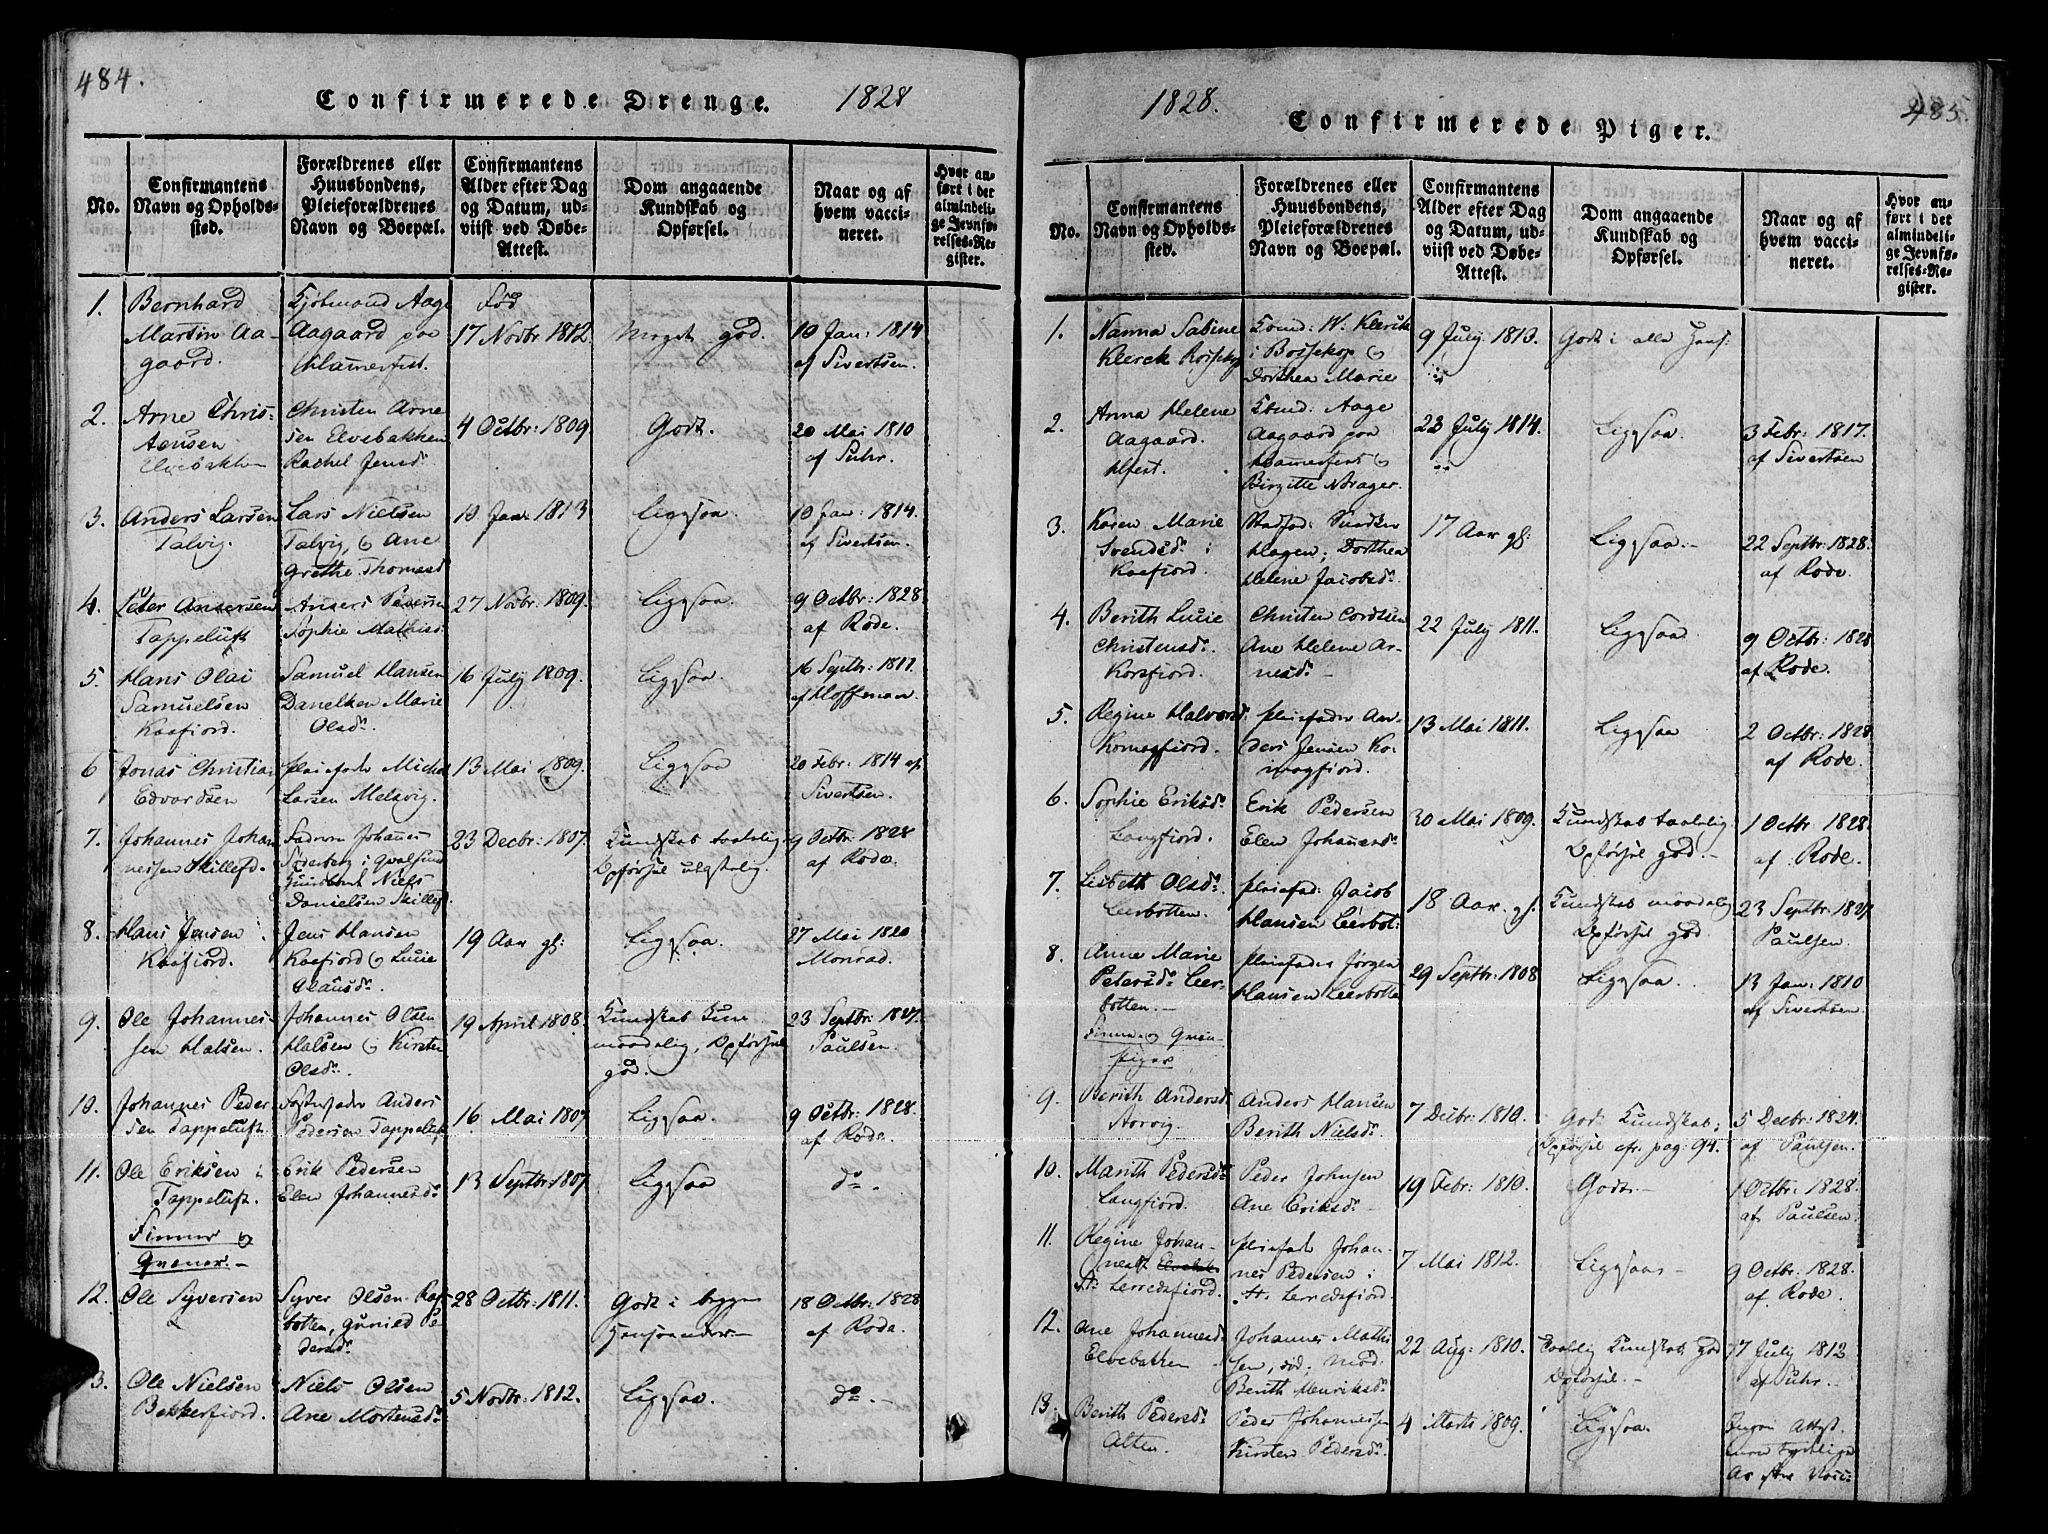 484.
Confirmerede Drenge. 1828
No.
Confirmantens Navn og Opholds-sted.
Forældrenes eller Huusbondens, Pleieforældrenes Navn og Boepæl.
Confirmantens Alder efter Dag og Datum, ud-viist ved Døbe-Attest.
Dom angaaende Kundskab og Opførsel.
Naar og af hvem vacci-neret.
Hvor an-ført i det almindeli-ge Jevnfø-relses-Re-gister.
1.
Bernhard
Martin Aa-
gaard.
Kjøbmand Aage
Aagaard paa
Hamerfest.
Fød
17 Novbr 1812.
Meget god.
10 Jan: 1814
af Sivertsen.
2.
Arne Chris-
tensen
Elvebakken
Christen Arne
sen Elvebakken
Rachel Jensd
4 Octbr: 1809.
Godt.
20 Mai 1810
af Suhr.
3.
Anders Larsen
Talvig.
Lars Nielsen
Talvig, og Ane
Grethe Thomasd
10 Jan: 1813
Ligesaa.
10 Jan: 1814.
af Sivertsen.
4.
Peter Andersen
Tappeluft
Anders Pedersen
Sophie Mathisd:
27 Novbr: 1809.
Ligesaa.
9 Octbr: 1828.
af Rode.
5.
Hans Olai
Samuelsen
Kaafiord.
Samuel Hansen
Danelken Marie
Olsdr.
16 July 1809.
Ligesaa.
16 Septbr: 1811.
af Hoffman
6
Jonas Christian
Edvardsen
Pleiefader Michel
Larsen Melsvig.
13 Mai 1809.
Ligesaa
20 Febr: 1814 af
Sivertsen.
7.
Johannes Johan
nessen Skillefd.
Faderen Johannes
Søderberg i Qvalsund
Huusbond Niels
Danielsen Skillefd
23 Decbr: 1807.
Kundskab taalelig
Opførsel ulastelig.
9 Octbr: 1828
af Rode.
8.
Hans Jensen i
Kaafiord.
Jens Hansen
Kaafiord og Lucie
Olausdr.
19 Aar gl:
Ligesaa.
27 Mai 1820
Monrad.
9.
Ole Johannes-
sen Halsen.
Johannes Olsen
Halsen og Kirsten
Olsdr.
19 April 1808.
Kundskab kune
maadelig, Opførsel
god.
23 Septbr: 1827.
Paulsen.
10.
Johannes Peder
sen Tappeluft.
Fosterfader Anders
Pedersen Tappeluft
16 Mai 1807
Ligesaa.
9 Octbr: 1828.
af Rode.
11.
Ole Eriksen i
Tappeluft.
Erik Pedersen
Elen Johannesdr
13 Septbr: 1807
Ligesaa
do.
Finner og
Qvæner.
12.
Ole Syversen
Syver Olsen Raf
botten, Guniled Pe
dersdr.
28 Octbr: 1811.
Godt i begge
Henseender
18 Octbr: 1828
af Rode.
13.
Ole Nielsen
Bekkerfiord.
Niels Olsen
Ane Mortensdr
5 Novbr: 1812.
Ligesaa.
do.
1828.
Confirmerede Piger.
485.
No.
Confirmantens Navn og Opholds-sted.
Forældrenes eller Huusbondens, Pleieforældrenes Navn og Boepæl.
Confirmantens Alder efter Dag og Datum, ud-viist ved Døbe-Attest.
Dom angaaende Kundskab og Opførsel.
Naar og af hvem vacci-neret.
Hvor an-ført i det almindeli-ge Jevnfø-relses-Re-gister.
1.
Nanna Sabine
Klerck Bossekop
Kbmd: W. Klerck
i Bossekop og
Dorthea Marie
9 July 1813.
Godt i alle Hens:
2.
Anna Helene
Aagaard.
Hfest.
Kbmd: Aage
Aagaard paa
Hammerfest og
Birgitte Norager.
23 July 1814.
Ligesaa.
3 Febr: 1817.
af Sivertsen
3.
Karen Marie
Svendsdr i
Kaafiord.
Hagen; Dorthea
Helene Jacobsdr.
17 Aar gl:
Ligesaa.
22 Septbr: 1828.
af Rode.
4.
Berith Lucie
Christensdr.
Korsfiord.
Christen Cordtsen
Ane Helene Ar-
nesdr.
22 July 1811.
Ligesaa.
9 Octbr: 1828
af Rode.
5.
Regine Halvorsd:
Komagfiord.
Pleiefader An-
ders Jensen Ko-
magfiord.
13 Mai 1811.
Ligesaa
2 Octbr: 1828
af Rode.
6.
Sophie Eriksdr.
Langfiord.
Erik Pedersen
Elen Johannesdr
30 Mai 1809.
Kundskab taalelig
Opførsel god.
1 Octbr 1828.
af Rode.
7.
Lisbeth Olsdr.
Leerbotten.
Pleiefad: Jacob
Hansen Leerbot:
18 Aar. gl.
Kundskab maadelig
Opførsel god.
23 Septbr: 1827.
Paulsen.
8.
Anne Marie
Petersdr Leer-
botten.
Pleiefader Jørgen
Hansen Leerbotte
29 Septbr: 1808
Ligesaa.
13 Jan: 1810
af Sivertsen.
Finne- og Qvæn-
Piger
9.
Berith Andersd
Aarvig.
Anders Hansen
Berith Nielsdr.
7 Decbr: 1810.
God Kundskab;
Opførsel cfr. pag: 94.
5 Decbr: 1824.
af Paulsen.
10.
Marith Pedersdr
Langfiord.
Peder Johnsen
Ane Eriksdr.
19 Febr: 1810.
Godt.
1 Octbr: 1828.
af Paulsen.
11.
Regine Johan-
nesdr
St: Lerredsfiord.
Pleiefader Johan-
nes Pedersen i
St. Lerredsfiord.
7 Mai 1812.
Ligesaa
9 Octbr: 1828.
af Rode.
12.
Ane Johannesd
Elvebakken
Johannes Mathi
sen, død; Mod.
Berith Henriksdr.
22 Aug: 1810.
Taalelig Kundskab, god
Opførsel.
17 July 1812
af Suhr.
13.
Berith Pedersdr
Alten.
Peder Johannessen
Kirsten Pedersdr.
4 Marts 1809.
Ligesaa.
Ingen Attest
men tydelige
Ar efter Vacc: